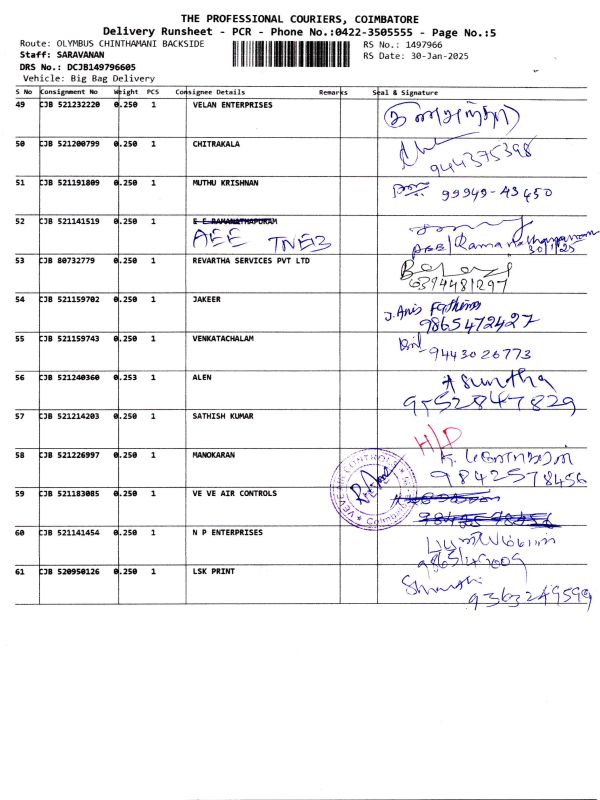 THE PROFESSIONAL COURIERS, COIMBATORE
Delivery Runsheet - PCR - Phone No.:0422-3505555 - Page No.:5
Route: OLYMBUS CHINTHAMANI BACKSIDE
RS No.: 1497966
Staff: SARAVANAN
RS Date: 30-Jan-2025
DRS No.: DCJB149796605
Vehicle: Big Bag Delivery
S No Consignment No Weight PCS Consignee Details Remarks Seal & Signature
49 CJB 521232220 0.250 1 VELAN ENTERPRISES
50 CJB 521200799 0.250 1 CHITRAKALA
9444375398
51 CJB 521191809 0.250 1 MUTHU KRISHNAN 99949-43450
52 CJB 521141519 0.250 1 E E RAMANATHAPURAM
AEE TNEB
AEE/Ramanathapuram
30/1/25
53 CJB 80732779 0.250 1 REVARTHA SERVICES PVT LTD
6394481297
54 CJB 521159702 0.250 1 JAKEER J. Anis Fathima
9865472427
55 CJB 521159743 0.250 1 VENKATACHALAM
9443026773
56 CJB 521240360 0.253 1 ALEN Asuntha
9552847829
57 CJB 521214203 0.250 1 SATHISH KUMAR
H/P
58 CJB 521226997 0.250 1 MANOKARAN
9842578456
59 CJB 521183085 0.250 1 VE VE AIR CONTROLS
VEVE AIR CONTROLS
Coimbatore
60 CJB 521141454 0.250 1 N P ENTERPRISES
61 CJB 520950126 0.250 1 LSK PRINT
9363249599